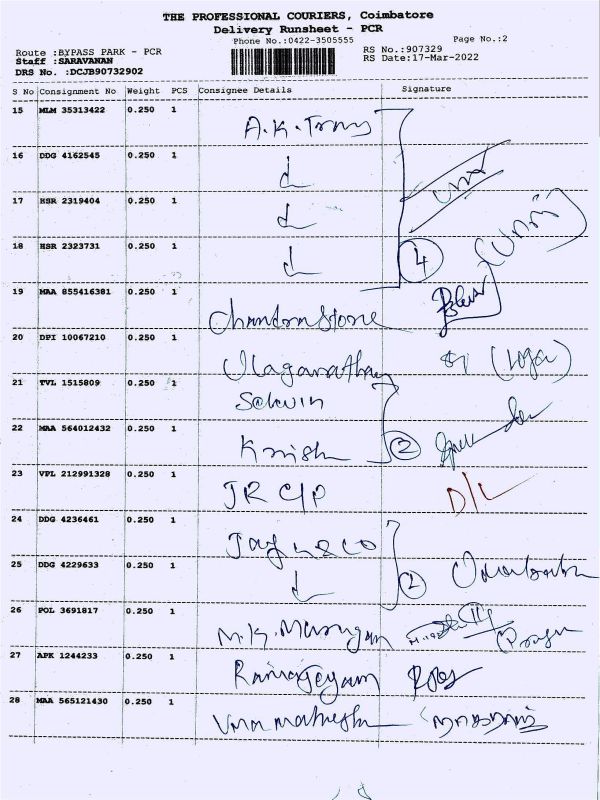 THE PROFESSIONAL COURIERS, Coimbatore
Delivery Runsheet - PCR
Phone No.:0422-3505555 Page No.:2
Route :BYPASS PARK - PCR RS No.:907329
Staff :SARAVANAN RS Date:17-Mar-2022
DRS No. :DCJB90732902
S No Consignment No Weight PCS Consignee Details Signature
15 MLM 35313422 0.250 1 A.K.
16 DDG 4162545 0.250 1
17 HSR 2319404 0.250 1
18 HSR 2323731 0.250 1 4
19 MAA 855416381 0.250 1 Chandra Stone
20 DPI 10067210 0.250 1 Ulaganathan
21 TVL 1515809 0.250 1 Selvin
22 MAA 564012432 0.250 1 Krish 2
23 VPL 212991328 0.250 1 JR C/P D/L
24 DDG 4236461 0.250 1 Jay & Co
25 DDG 4229633 0.250 1 2
26 POL 3691817 0.250 1 M.K. Murugan
27 APK 1244233 0.250 1 Ramajeyam
28 MAA 565121430 0.250 1 Umamahesh